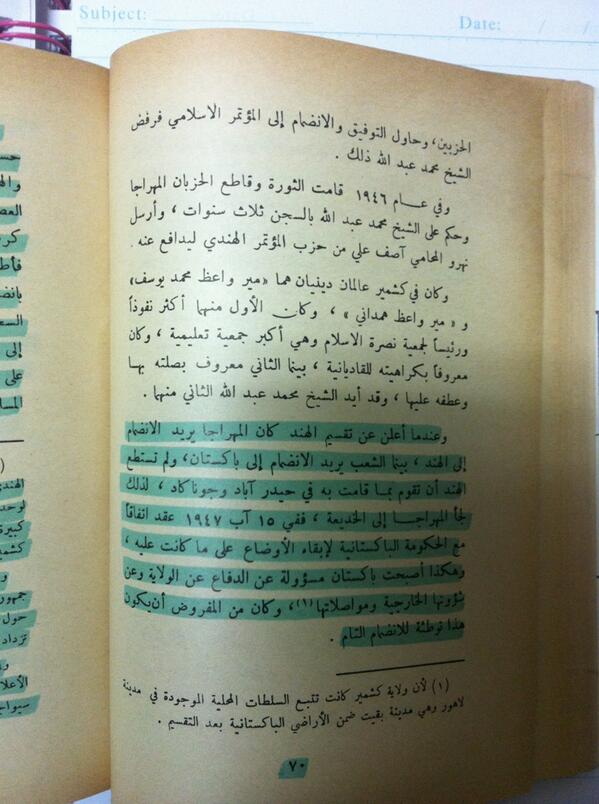 Subject:
Date: / /
الحزبين، وحاول التوفيق والانضمام إلى المؤتمر الاسلامي فرفض
الشيخ محمد عبد الله ذلك .
وفي عــام ١٩٤٦ قامت الثورة وقاطع الحزبان المهراجا
وحكم على الشيخ محمد عبد الله بالسجن ثلاث سنوات ، وأرسل
نهرو المحامي آصف علي من حزب المؤتمر الهندي ليدافع عنه .
وكان في كشمير عالمان دينيان هما «مير واعظ محمد يوسف»
و « مير واعظ همداني » ، وكان الأول منهما أكثر نفوذاً
ورئيساً لجمعية نصرة الاسلام وهي أكبر جمعية تعليمية ، وكان
معروفاً بكراهيته للقاديانية ، بينما الثاني معروف بصلته بها
وعطفه عليها ، وقد أيد الشيخ محمد عبد الله الثاني منهما .
وعندما أعلن عن تقسيم الهند كان المهراجا يريد الانضمام
إلى الهند ، بينما الشعب يريد الانضمام إلى باكستان، ولم تستطع
الهند أن تقوم بما قامت به في حيدر آباد وجوناكاد ، لذلك
لجأ المهراجـا إلى الخديعة ، ففي ١٥ آب ١٩٤٧ عقد اتفاقاً
مع الحكومة الباكستانية لإبقاء الأوضاع على ما كانت عليه ،
وهكذا أصبحت باكستان مسؤولة عن الدفاع عن الولاية وعن
شؤونها الخارجية ومواصلاتها(١)، وكان من المفروض أن يكون
هذا توطئة للانضمام التام .
(١) لأن ولاية كشمير كانت تتبع السلطات المحلية الموجودة في مدينة
لاهور وهي مدينة بقيت ضمن الأراضي الباكستانية بعد التقسيم .
٧٠
إلى
على
الهندي
كبيرة
جمهور
حول
تزداد